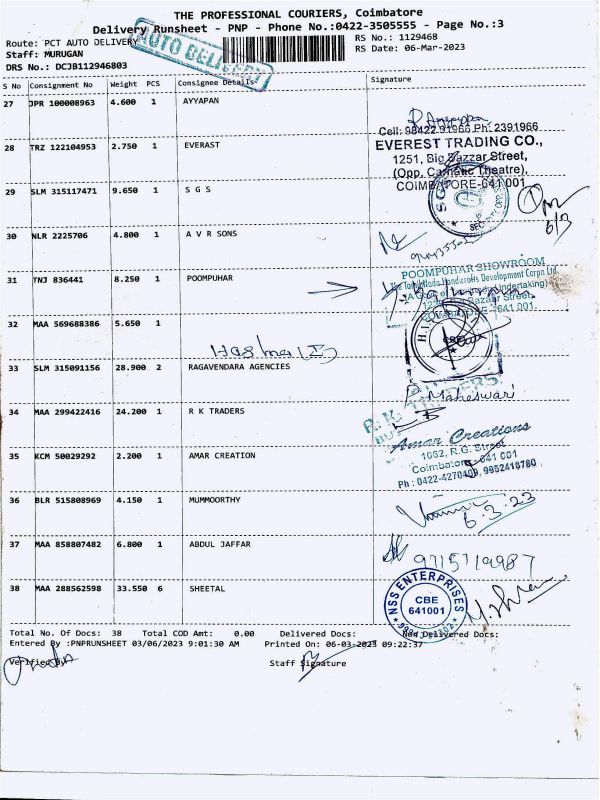 THE PROFESSIONAL COURIERS, Coimbatore
Delivery Runsheet - PNP - Phone No.:0422-3505555 - Page No.:3
Route: PCT AUTO DELIVERY
AUTO DELIVERY
RS No.: 1129468
Staff: MURUGAN
RS Date: 06-Mar-2023
DRS No.: DCJB112946803
S No Consignment No Weight PCS Consignee Details Signature
27 JPR 100008963 4.600 1 AYYAPAN
Cell: 98422 91966 Ph: 2391966
28 TRZ 122104953 2.750 1 EVERAST
EVEREST TRADING CO.,
1251, Big Bazzar Street,
(Opp. Carnatic Theatre),
COIMBATORE-641 001
29 SLM 315117471 9.650 1 S G S
6/3
30 NLR 2225706 4.800 1 A V R SONS
31 TNJ 836441 8.250 1 POOMPUHAR
POOMPUHAR SHOWROOM
The Tamil Nadu Handicrafts Development Corpn Ltd
Undertaking)
Big Bazaar Street,
COIMBATORE-641 001.
32 MAA 569688386 5.650 1
CBE
33 SLM 315091156 28.900 2 RAGAVENDARA AGENCIES
P. Maheswari
34 MAA 299422416 24.200 1 R K TRADERS
35 KCM 50029292 2.200 1 AMAR CREATION
Amar Creations
1062, R.G. Street
Coimbatore-641 001
Ph : 0422-4270409, 9952418780
36 BLR 515808969 4.150 1 MUMMOORTHY
6.3.23
37 MAA 858807482 6.800 1 ABDUL JAFFAR
9715719987
38 MAA 288562598 33.550 6 SHEETAL
NSS ENTERPRISES
CBE
641001
Total No. Of Docs: 38 Total COD Amt: 0.00 Delivered Docs: Non Delivered Docs:
Entered By :PNPRUNSHEET 03/06/2023 9:01:30 AM Printed On: 06-03-2023 09:22:37
Verified By
Staff Signature